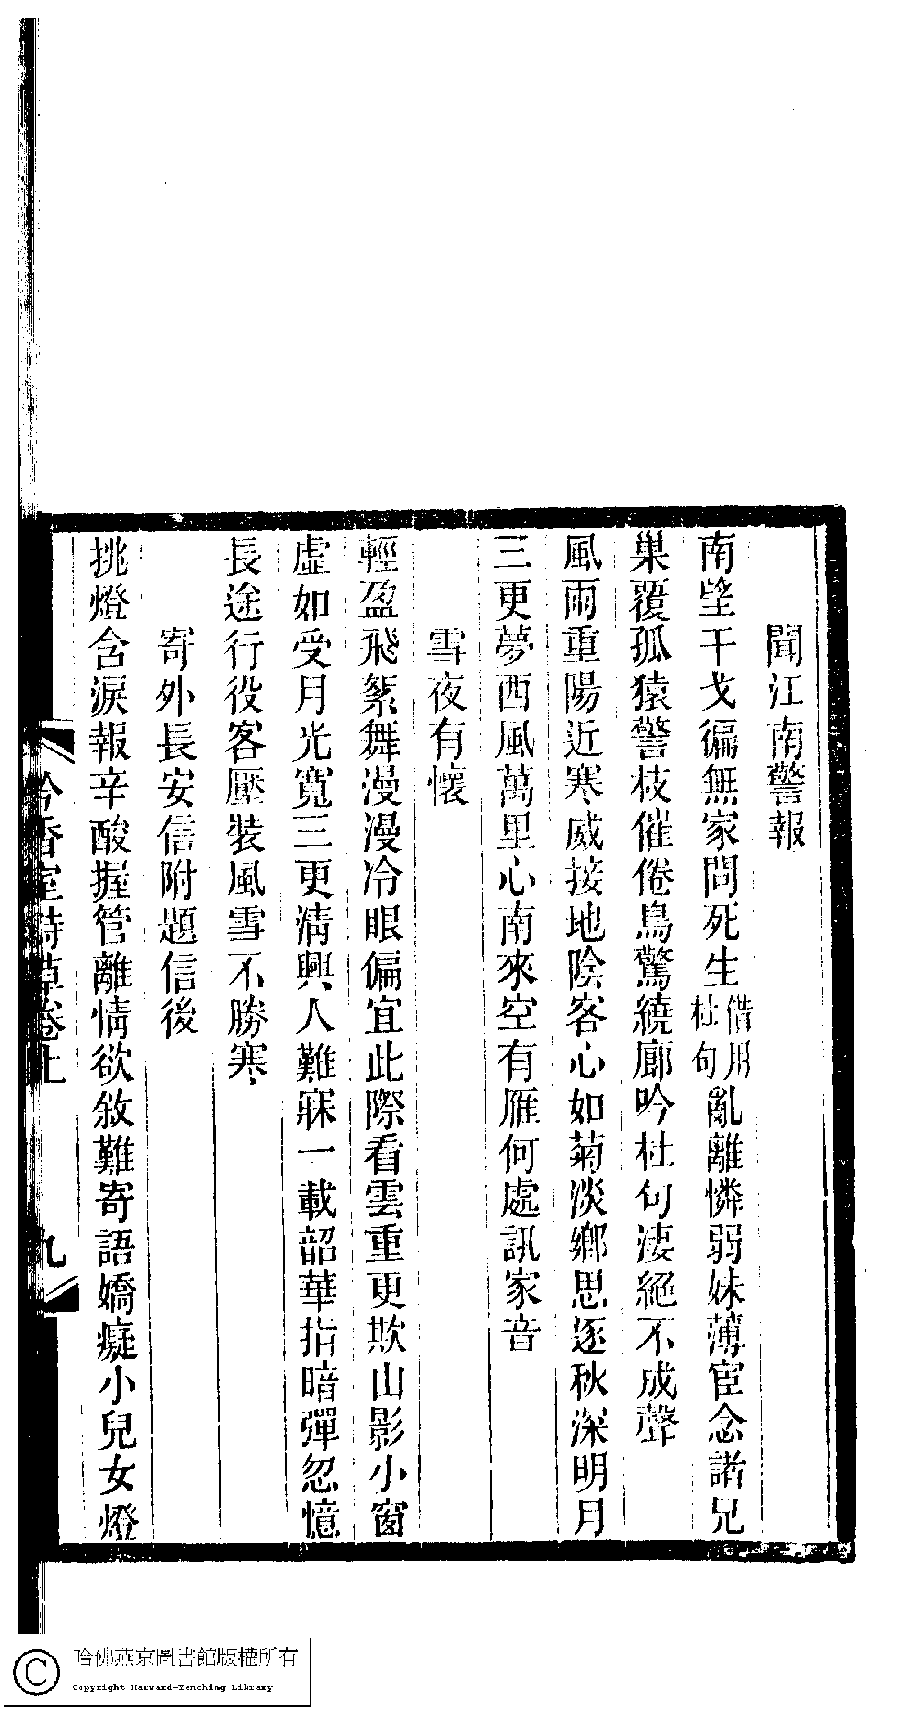 聞江南警報
南望干戈徧無家問死生借用杜句亂離憐弱妹薄宦念諸兄
巢覆孤猿警枝催倦鳥驚繞廊吟杜句淒絕不成聲
風雨重陽近寒威接地陰客心如菊淡鄉思逐秋深明月
三更夢西風萬里心南來空有雁何處訊家音
雪夜有懷
輕盈飛絮舞漫漫冷眼偏宜此際看雲重更欺山影小窗
虛如受月光寬三更清興人難寐一載韶華指暗彈忽憶
長途行役客壓裝風雪不勝寒
寄外長安信附題信後
挑燈含淚報辛酸握管離情欲敘難寄語嬌癡小兒女燈
吟香室詩草卷上
九
哈佛燕京圖書館版權所有
Copyright Harvard-Yenching Library